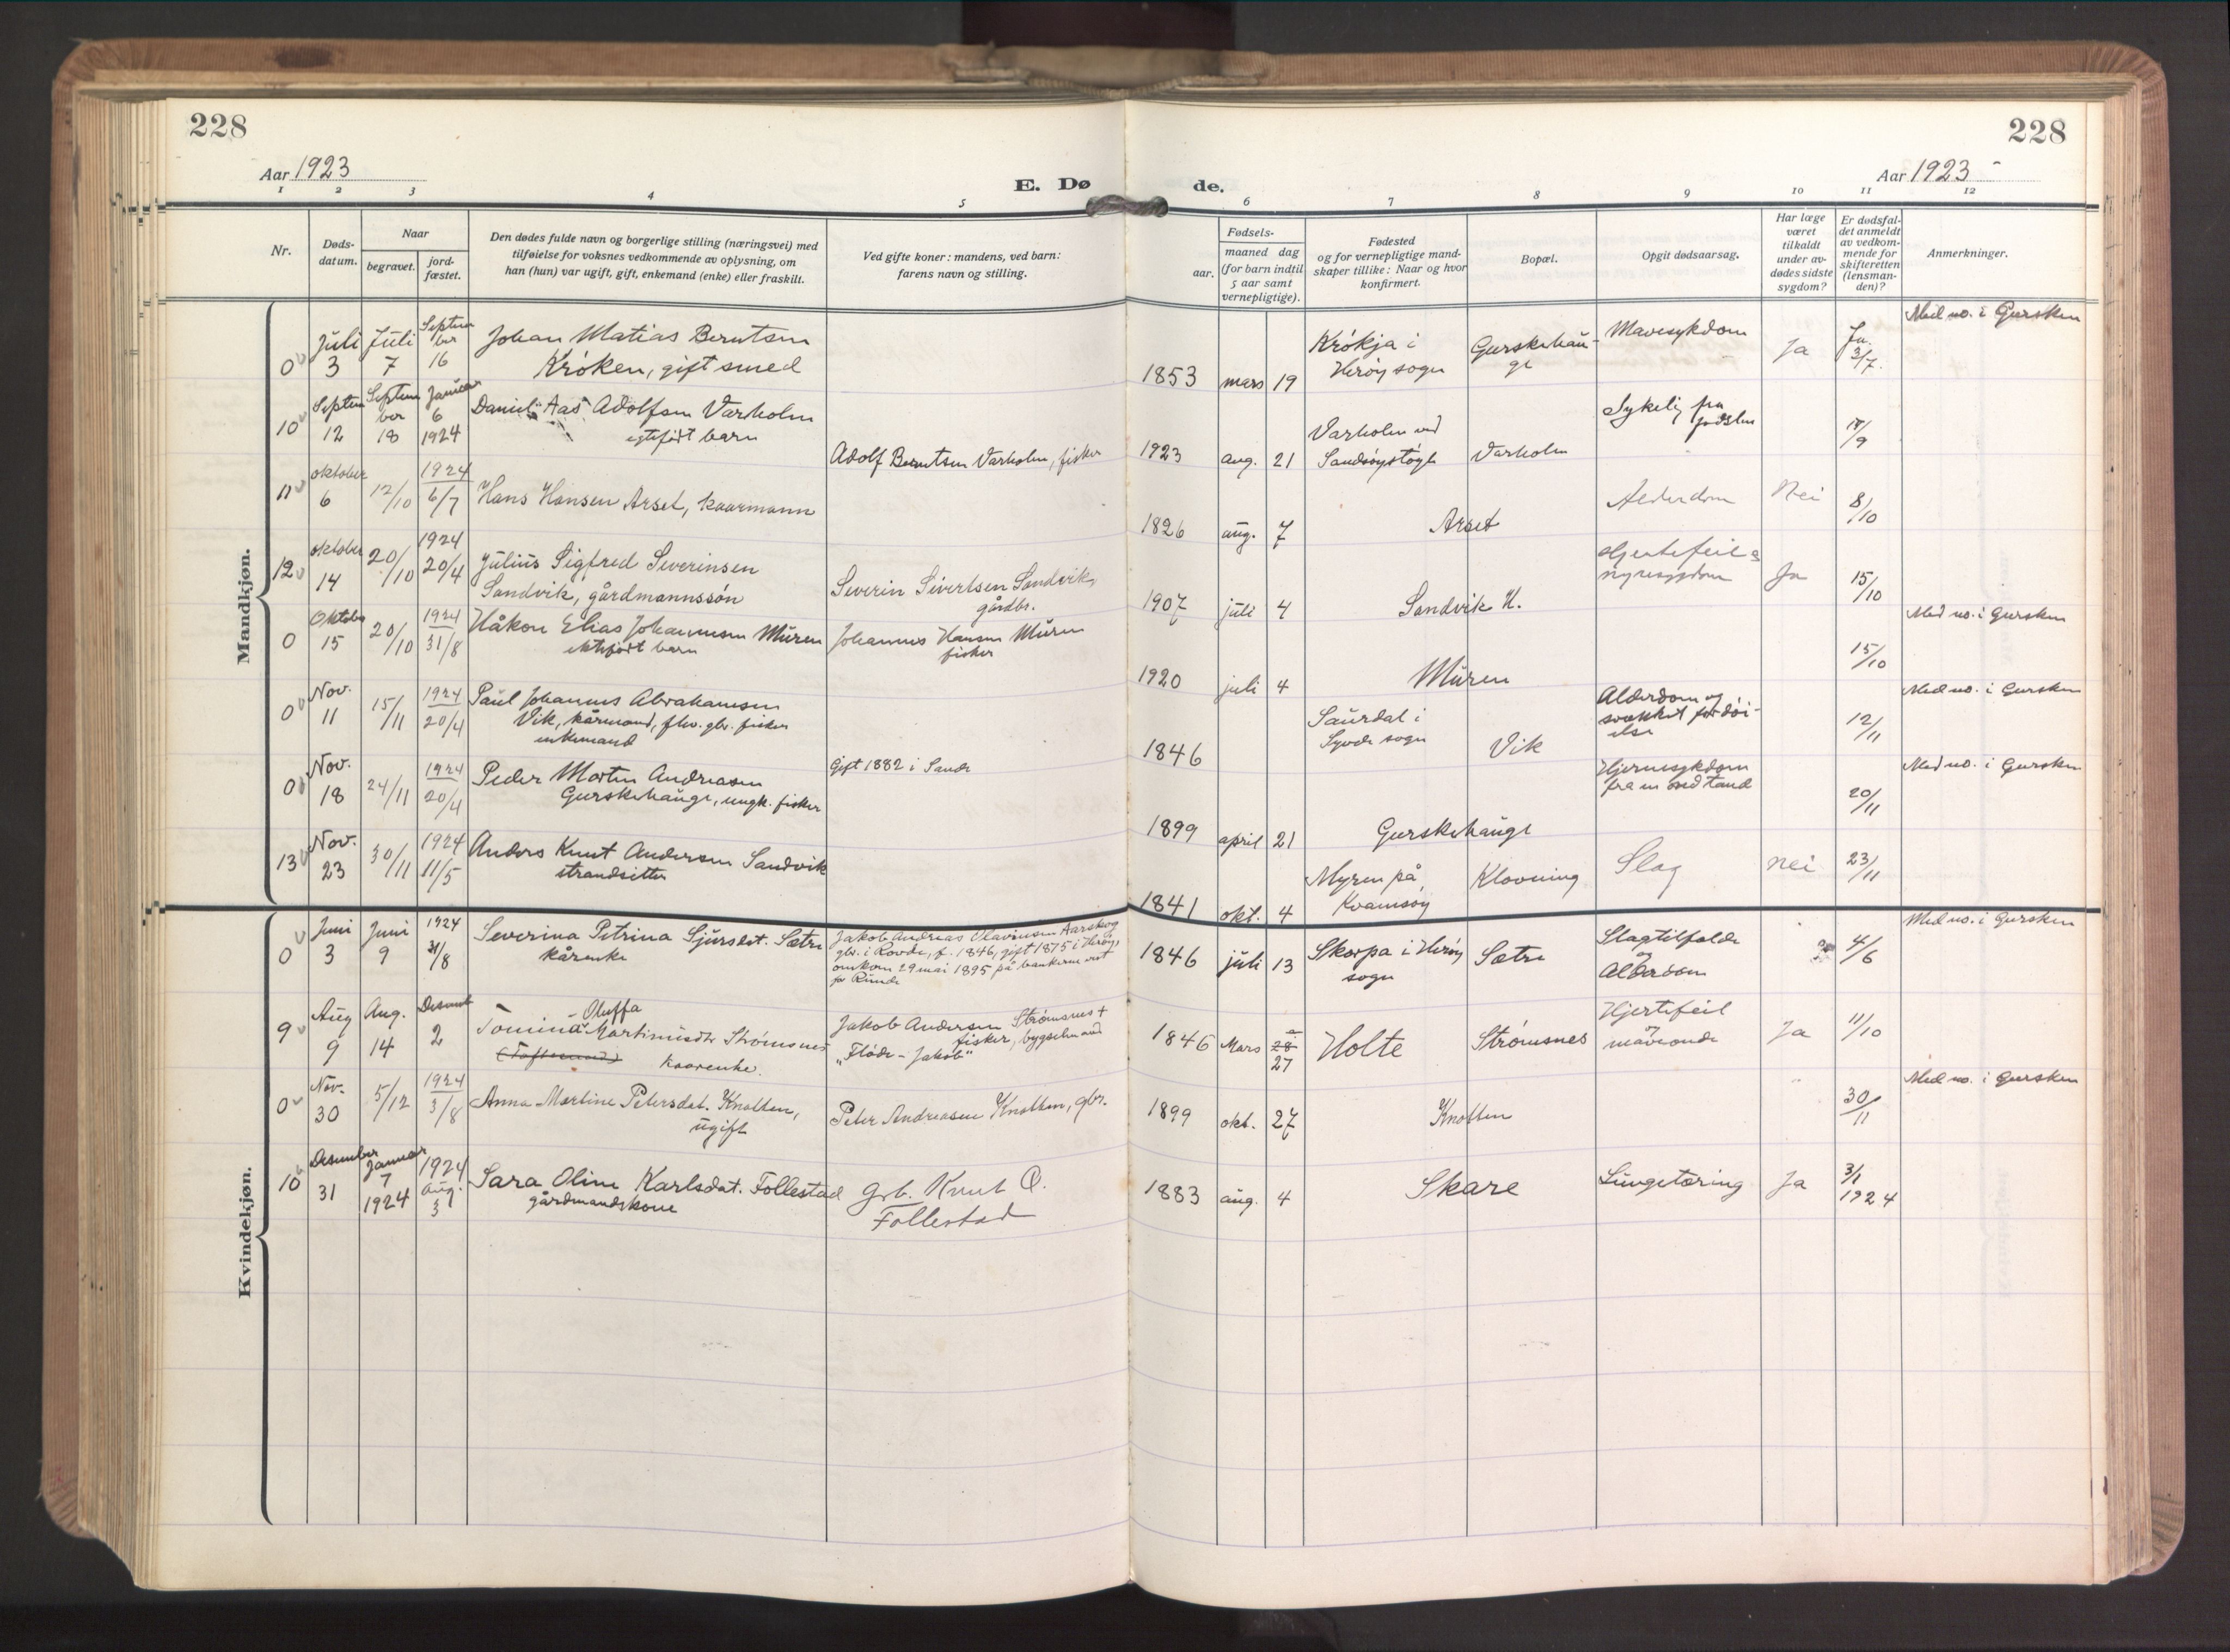 228
228
Aar 1923
E. Dø
de.
Aar 1923
1 2 3 4 5 6 7 8 9 10 11 12
Nr.
Døds-
datum.
Naar
begravet.
jord-
fæstet.
Den dødes fulde navn og borgerlige stilling (næringsvei) med
tilføielse for voksnes vedkommende av oplysning, om
han (hun) var ugift, gift, enkemand (enke) eller fraskilt.
Ved gifte koner: mandens, ved barn:
farens navn og stilling.
Fødsels-
aar.
maaned dag
(for barn indtil
5 aar samt
vernepligtige).
Fødested
og for vernepligtige mand-
skaper tillike: Naar og hvor
konfirmert.
Bopæl.
Opgit dødsaarsag.
Har læge
været
tilkaldt
under av-
dødes sidste
sygdom?
Er dødsfal-
det anmeldt
av vedkom-
mende for
skifteretten
(lensman-
den)?
Anmerkninger.
Mandkjøn.
0 Juli 3 Juli 7 Septem
ber 16
Johan Matias Berntsen
Krøken, gift smed
1853 mars 19
Krókja i
Herøy sogn
Gurskehau-
ge
Mavesykdom
Ja
Ja. 3/7.
Med no. i Gursken
10 Septem 12 Septem
ber 18 Januar 6 1924
Daniel Aas Adolfsen Varholm
egtefødt barn
Adolf Berntsen Varholm, fisker
1923 aug. 21
Varholm ved
Sandsøystøyl
Varholm
Sykelig fra
fødslen
18/9
11 oktober 6 12/10 1924 6/7
Hans Hansen Arset, kaarmann
1826 aug. 7
Arset
Alderdom
Nei
8/10
12 oktober 14 20/10 1924 20/4
Julius Sigfred Severinsen
Sandvik, gårdmannssón
Severin Sivertsen Sandvik,
gårdbr.
1907 juli 4
Sandvik U.
Hjertefeil &
nyresygdom
Ja
15/10
0 Oktober 15 20/10 1924 31/8
Håkon Elias Johannesen Mùren
ektefødt barn
Johannes Hansen Mùren
fisker
1920 juli 4
Mùren
15/10
Med no. i Gursken
0 Nov. 11 15/11 1924 20/4
Paul Johannes Abrahamsen
Vik, kårmand, fhv. gbr. fisker
enkemand
1846
Saurdal i
Syvde sogn
Vik
Alderdom og
svekket fordøi-
else
12/11
Med no. i Gursken
0 Nov. 18 24/11 1924 20/4
Peder Martin Andreasen
Gurskehauge, ungk. fisker
Gift 1882 i Sande
1899 april 21
Gurskehauge
Hjernesykdom
fra en ond tand
20/11
Med no. i Gursken
13 Nov. 23 30/11 1924 11/5
Anders Knut Andersen Sandvik
strandsitter
1841 okt. 4
Myren på
Kvamsøy
Klovning
Slag
nei
23/11
Kvindekjøn.
0 Juni 3 Juni 9 1924 31/8
Severina Petrina Sjursdt. Sætre
kårenke
Jakob Andreas Olavinsen Aarskog
gbr. i Rovde, f. 1846, gift 1875 i Herøy,
omkom 29 mai 1895 på bankerne vest
for Runde
1846 juli 13
Skorpa i Herøy
sogn
Sætre
Slagtilfælde
og
Alderdom
4/6
Med no. i Gursken
9 Aug 9 Aug. 14 Desemb 2
- Oluffa
Tomina Martinusdtr Strømsnes
kaarenke.
Jakob Andersen Strømsnes +
fisker, bygselmand
„Fløde-Jakob"
1846 Mars 28 27
Holte
Strømsnes
Hjertefeil
og
maveonde
Ja
11/10
0 Nov. 30 5/12 1924 3/8
Anna Martine Petersdat. Knotten,
ugift
Peter Andreasen Knotten, gbr.
1899 okt. 27
Knotten
30/11
Med no. i Gursken
10 Desember 31 Januar 7 1924 1924 aug. 31
Sara Oline Karlsdat. Follestad
gårdmandskone
Grb. Knut O.
Follestad
1883 aug. 4
Skare
Lungetæring
Ja
3/1 1924